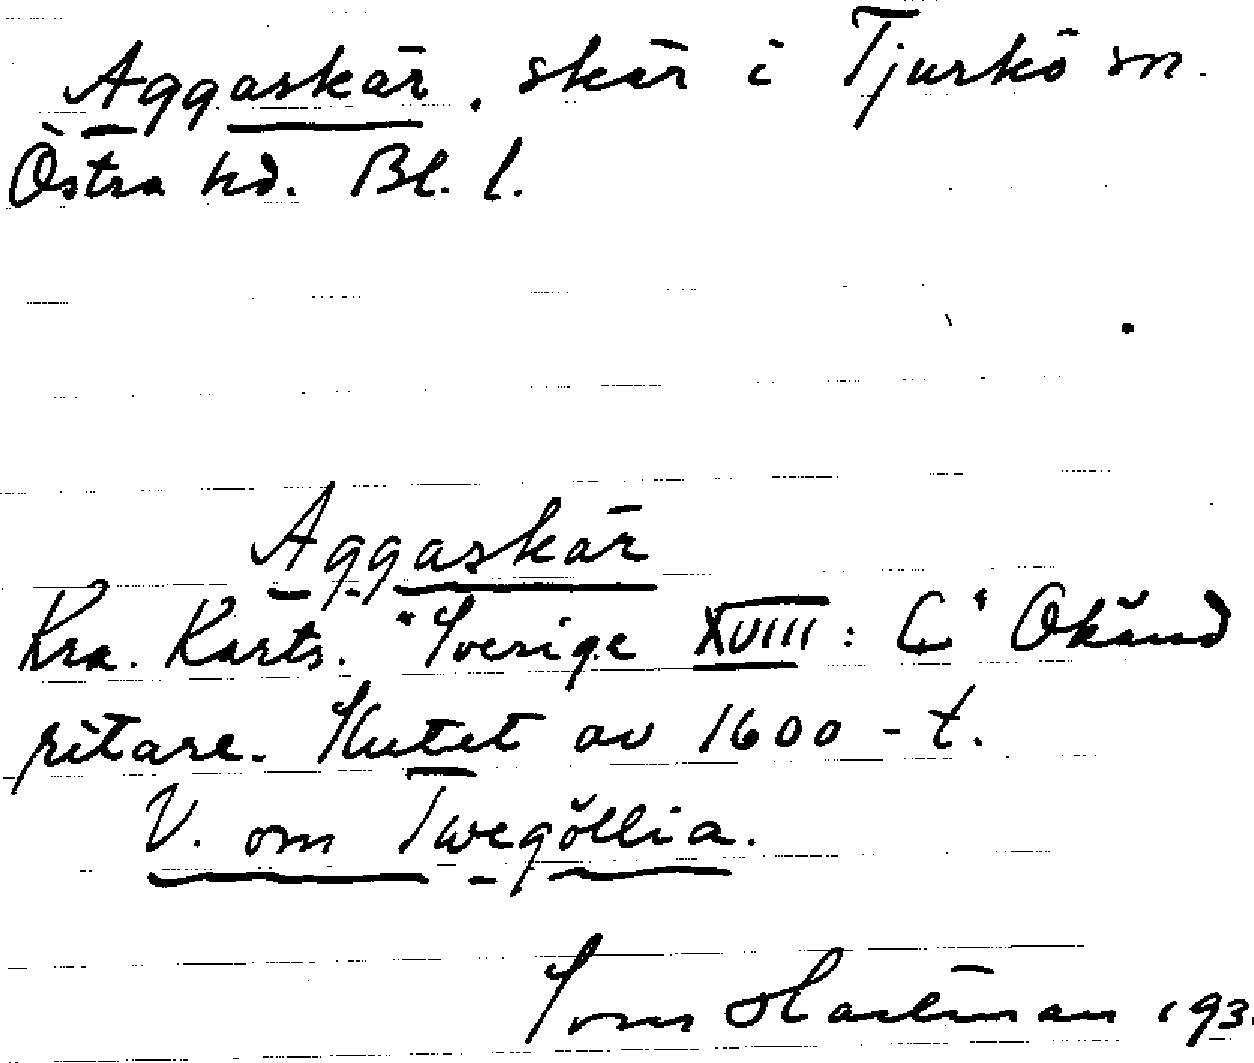 Aggaskär, skär i Tjurkö sn.
Östra hd. Bl. l.
Aggaskär
Kra. Karts. "Sverige XVIII: C" Okänd
ritare. Slutet av 1600-t.
V. om Twegöllia.
Sven Hallman 193.